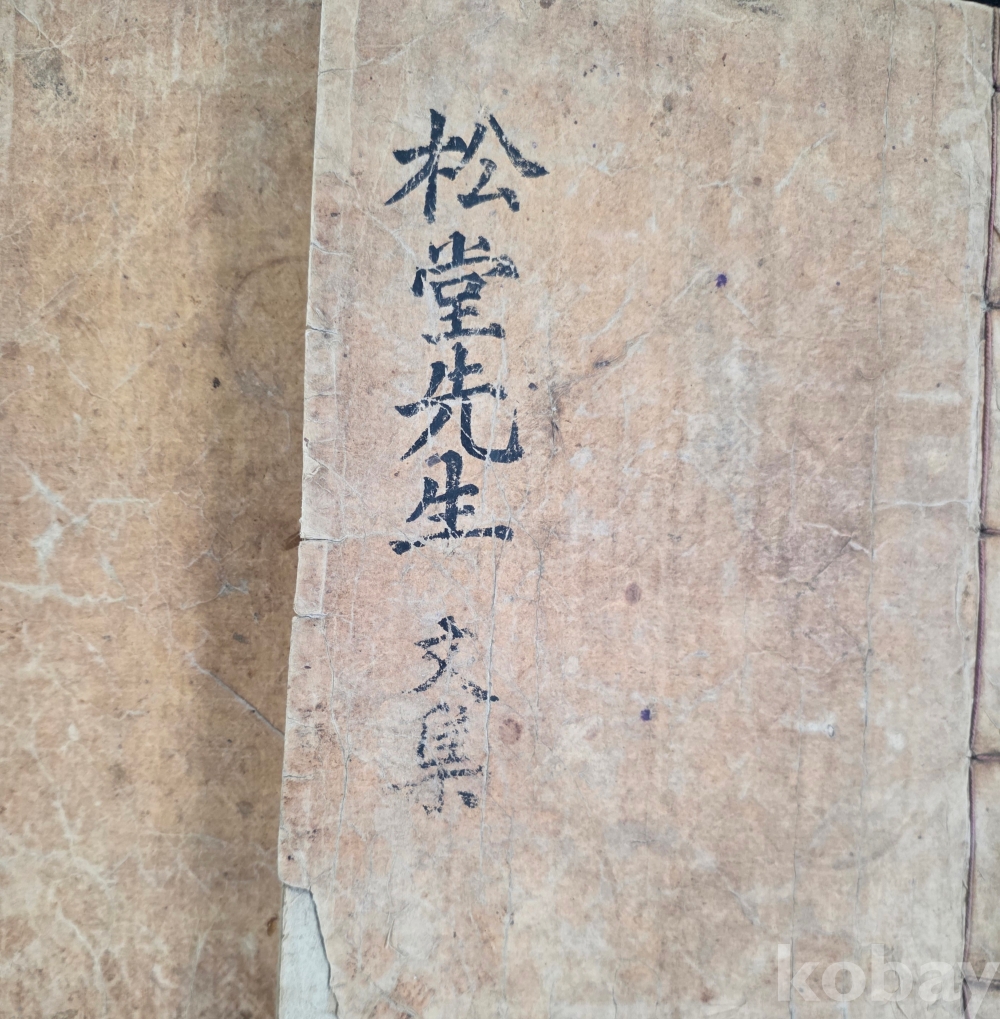 松堂先生 文集
kobay